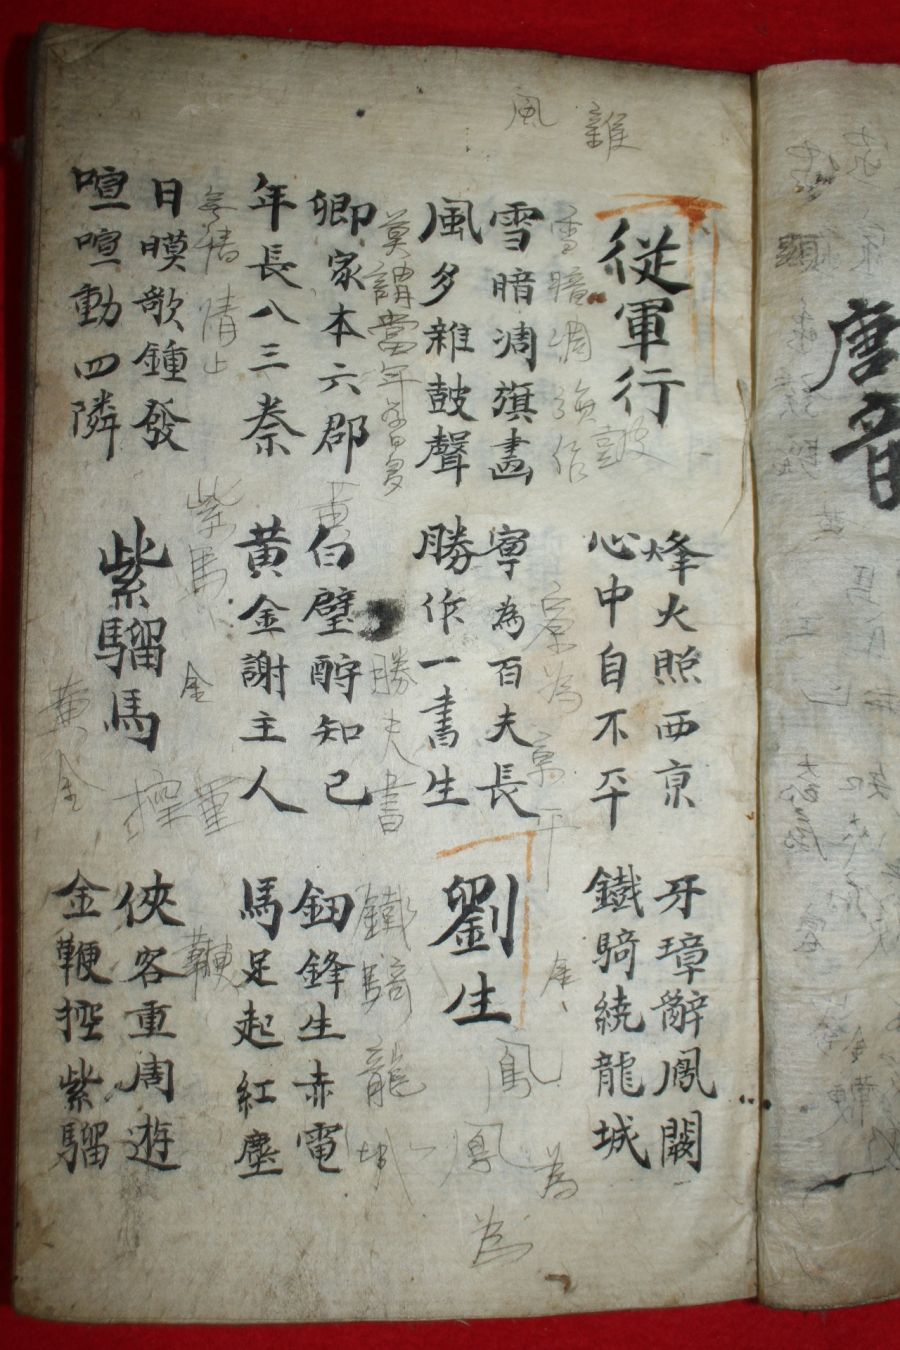 唐音
從軍行
烽火照西亰
心中自不平
牙璋辭鳳闕
鐵騎繞龍城
雪暗凋旗畫
風多雜鼓聲
寧為百夫長
勝作一書生
劉生
卿家本六郡
年長八三秦
白璧酧知己
黄金謝主人
釼鋒生赤電
馬足起紅塵
日暯歌鍾發
喧喧動四隣
紫騮馬
俠客重周遊
金鞭控紫騮
雜
風
雪暗凋
鼓
寧為
莫謂當年學日多
勝夫書
鐵騎龍城
鳳
鳳
為
為
金
紫馬
金
黄金
控重
鞭